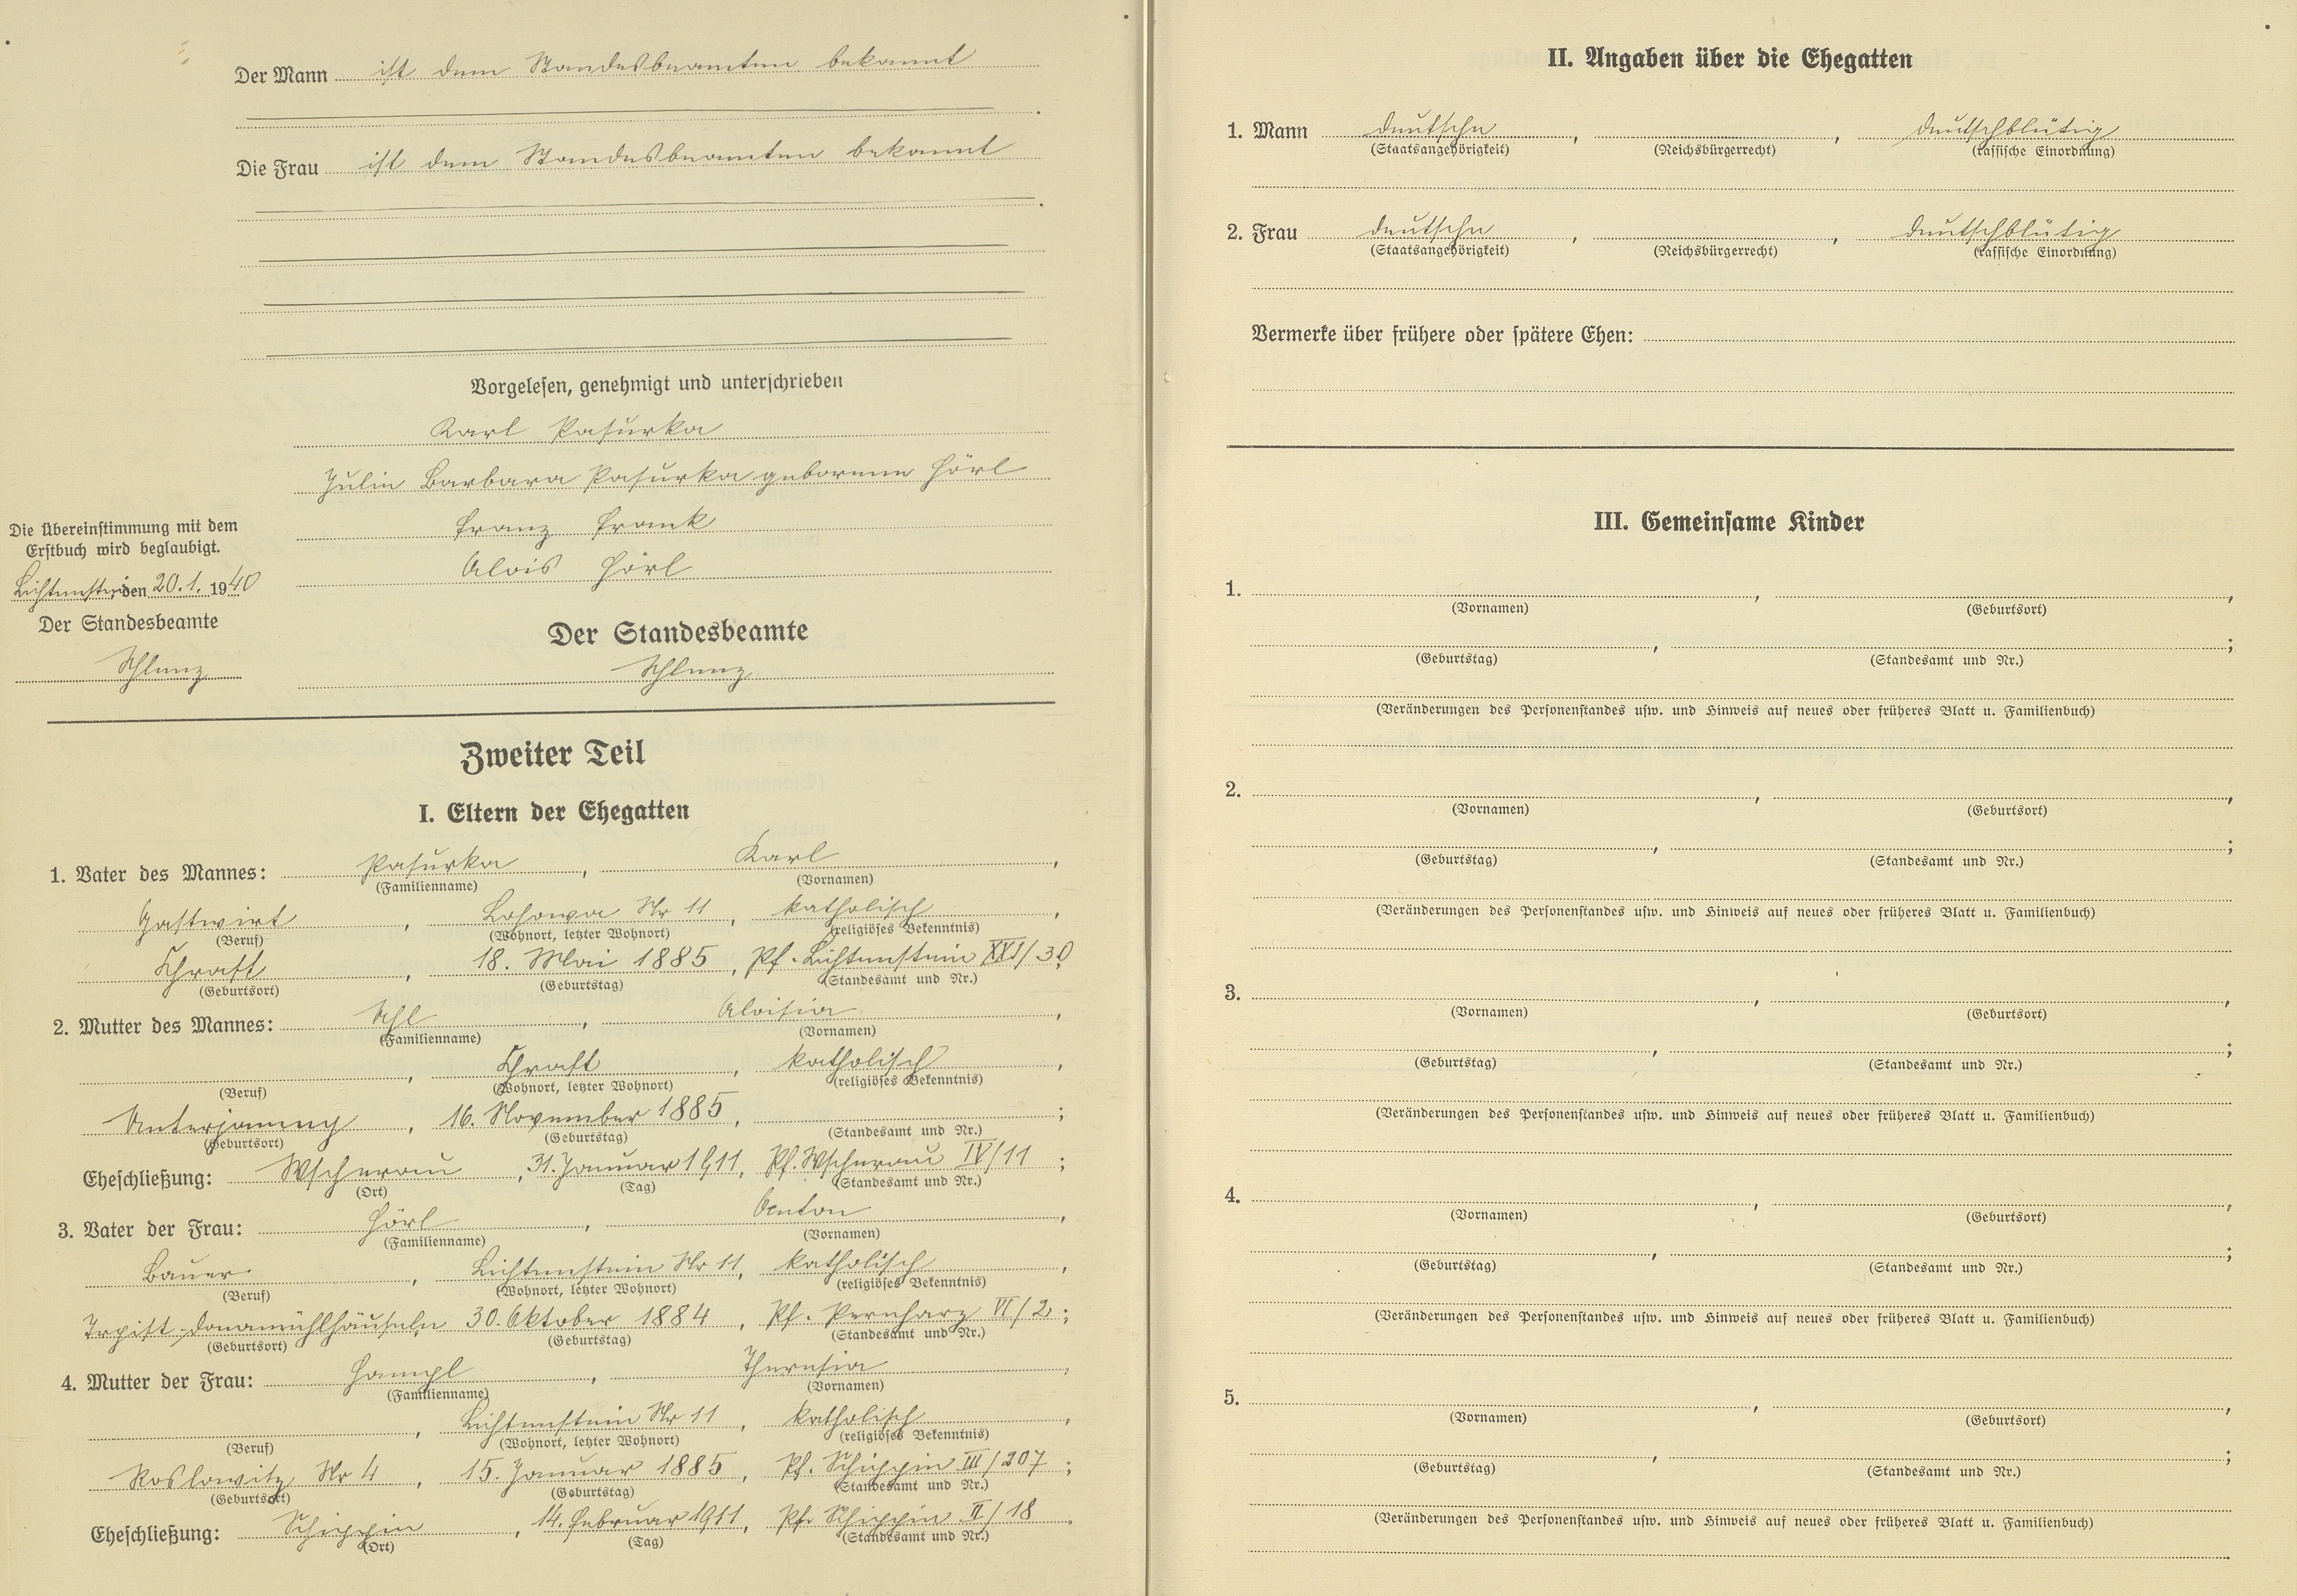 Der Mann ist dem Standesbeamten bekannt
Die Frau ist dem Standesbeamten bekannt
Vorgelesen, genehmigt und unterschrieben
Karl Pasurka
Julie Barbara Pasurka geborene Hörl
Franz Frank
Alois Hörl
Die Übereinstimmung mit dem
Erstbuch wird beglaubigt.
Lichtenstein, den 20. 1. 1940
Der Standesbeamte
Der Standesbeamte
Zweiter Teil
I. Eltern der Ehegatten
1. Vater des Mannes: Pasurka, Karl,
(Familienname) (Vornamen)
Gastwirt, Losowa Nr 11, katholisch,
(Beruf) (Wohnort, letzter Wohnort) (religiöses Bekenntnis)
18. Mai 1885, Pf. Lichtenstein XXI/30
(Geburtsort) (Geburtstag) (Standesamt und Nr.)
2. Mutter des Mannes: , Aloisia,
(Familienname) (Vornamen)
, , katholisch,
(Beruf) (Wohnort, letzter Wohnort) (religiöses Bekenntnis)
Unterjamny, 16. November 1885, ;
(Geburtsort) (Geburtstag) (Standesamt und Nr.)
Eheschließung: Wscherau, 31. Januar 1911, Pf. Wscherau IV/11;
(Ort) (Tag) (Standesamt und Nr.)
3. Vater der Frau: Hörl, Anton,
(Familienname) (Vornamen)
Bauer, Lichtenstein Nr 11, katholisch,
(Beruf) (Wohnort, letzter Wohnort) (religiöses Bekenntnis)
Trpist, 30. Oktober 1884, Pf. Pernharz VI/2;
(Geburtsort) (Geburtstag) (Standesamt und Nr.)
4. Mutter der Frau: Hampl, Theresia,
(Familienname) (Vornamen)
, Lichtenstein Nr 11, katholisch,
(Beruf) (Wohnort, letzter Wohnort) (religiöses Bekenntnis)
Roslowitz Nr 4, 15. Januar 1885, Pf. Schippin III/207;
(Geburtsort) (Geburtstag) (Standesamt und Nr.)
Eheschließung: Schippin, 14. Februar 1911, Pf. Schippin II/18.
(Ort) (Tag) (Standesamt und Nr.)
II. Angaben über die Ehegatten
1. Mann deutsche, , deutschblütig
(Staatsangehörigkeit) (Reichsbürgerrecht) (rassische Einordnung)
2. Frau deutsche, , deutschblütig
(Staatsangehörigkeit) (Reichsbürgerrecht) (rassische Einordnung)
Vermerke über frühere oder spätere Ehen:
III. Gemeinsame Kinder
1. , ,
(Vornamen) (Geburtsort)
, ;
(Geburtstag) (Standesamt und Nr.)
(Veränderungen des Personenstandes usw. und Hinweis auf neues oder früheres Blatt u. Familienbuch)
2. , ,
(Vornamen) (Geburtsort)
, ;
(Geburtstag) (Standesamt und Nr.)
(Veränderungen des Personenstandes usw. und Hinweis auf neues oder früheres Blatt u. Familienbuch)
3. , ,
(Vornamen) (Geburtsort)
, ;
(Geburtstag) (Standesamt und Nr.)
(Veränderungen des Personenstandes usw. und Hinweis auf neues oder früheres Blatt u. Familienbuch)
4. , ,
(Vornamen) (Geburtsort)
, ;
(Geburtstag) (Standesamt und Nr.)
(Veränderungen des Personenstandes usw. und Hinweis auf neues oder früheres Blatt u. Familienbuch)
5. , ,
(Vornamen) (Geburtsort)
, ;
(Geburtstag) (Standesamt und Nr.)
(Veränderungen des Personenstandes usw. und Hinweis auf neues oder früheres Blatt u. Familienbuch)